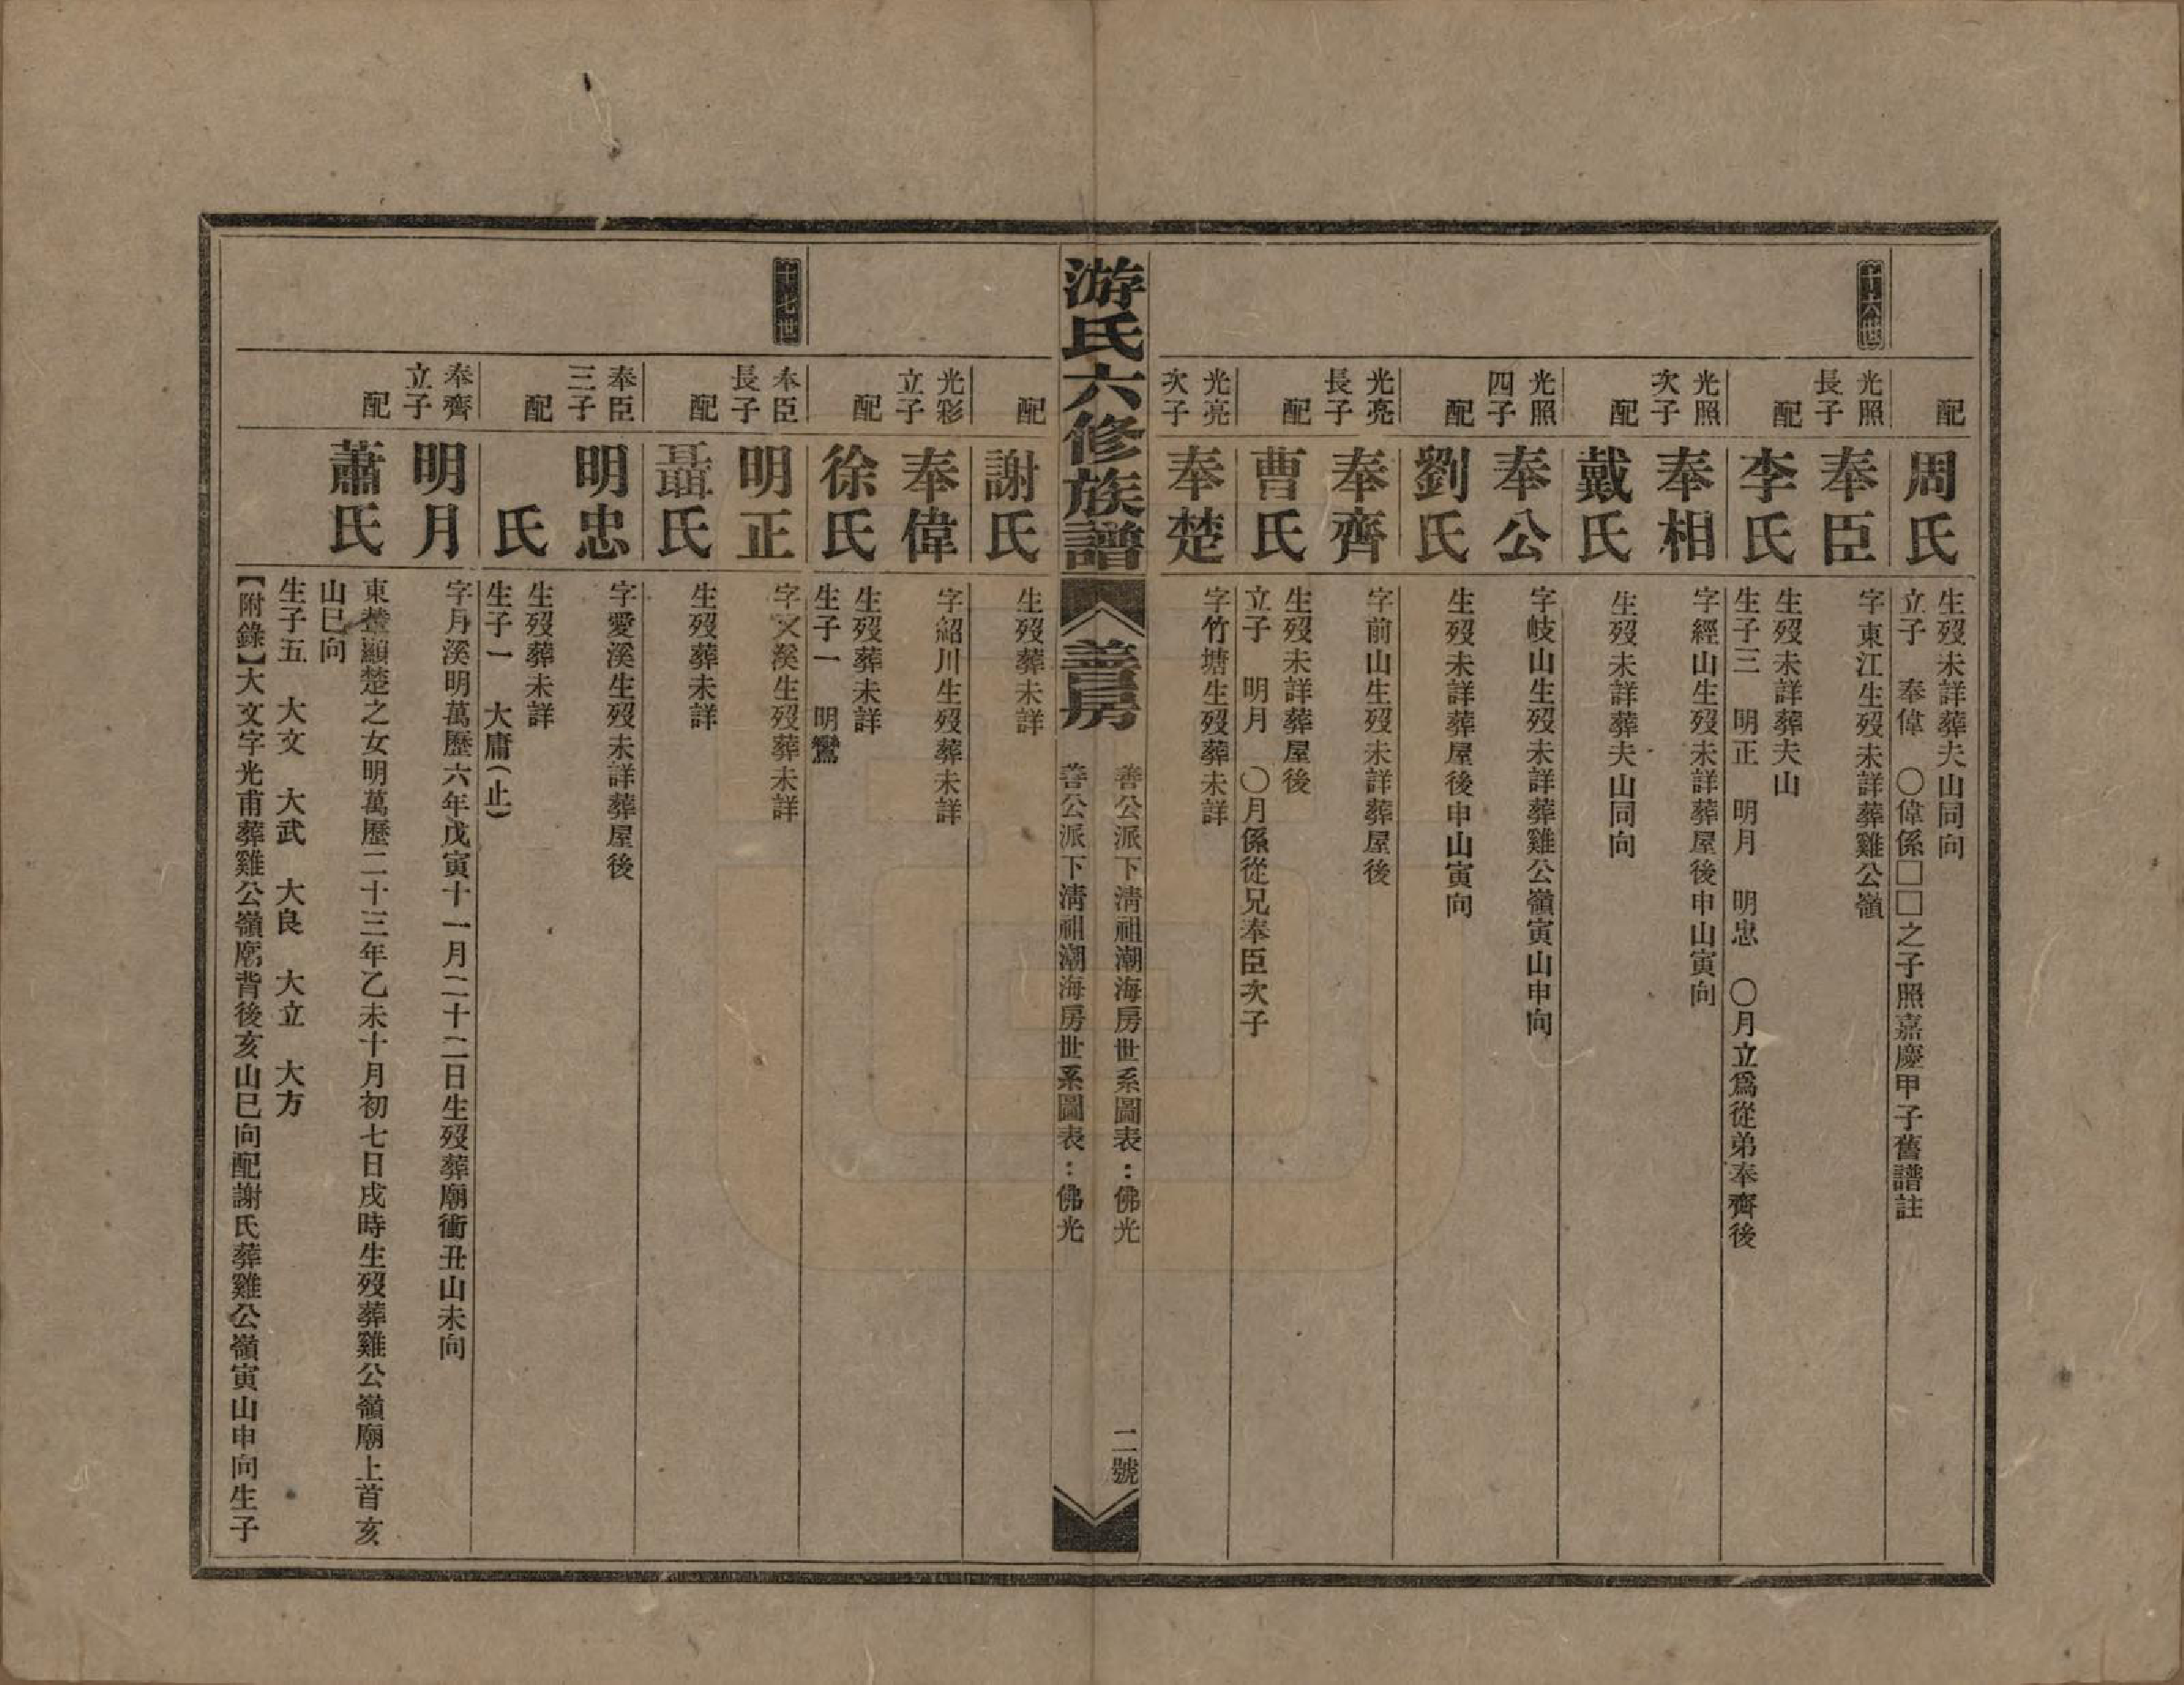 配
周氏
生歿未詳葬夫山同向
立子　奉偉　〇偉係□□之子照嘉慶甲子舊譜註
十六世
光照
長子
奉臣
字東江生歿未詳葬雞公嶺
配
李氏
生歿未詳葬夫山
生子三　明正　明月　明忠　〇月立爲從弟奉齊後
光照
次子
奉相
字經山生歿未詳葬屋後申山寅向
配
戴氏
生歿未詳葬夫山同向
光照
四子
奉公
字岐山生歿未詳葬雞公嶺寅山申向
配
劉氏
生歿未詳葬屋後申山寅向
光亮
長子
奉齊
字前山生歿未詳葬屋後
配
曹氏
生歿未詳葬屋後
立子　明月　〇月係從兄奉臣次子
光亮
次子
奉楚
字竹塘生歿葬未詳
游氏六修族譜
善房
善公派下清祖潮海房世系圖表：佛光
善公派下清祖潮海房世系圖表：佛光
二號
配
謝氏
生歿葬未詳
光彩
立子
奉偉
字紹川生歿葬未詳
配
徐氏
生歿葬未詳
生子一　明鸞
十七世
奉臣
長子
明正
字文溪生歿葬未詳
配
聶氏
生歿葬未詳
奉臣
三子
明忠
字愛溪生歿未詳葬屋後
配
氏
生歿葬未詳
生子一　大庸（止）
奉齊
立子
明月
字月溪明萬歷六年戊寅十一月二十二日生歿葬廟衝丑山未向
配
蕭氏
東整顯楚之女明萬歷二十三年乙未十月初七日戌時生歿葬雞公嶺廟上首亥
山巳向
生子五　大文　大武　大良　大立　大方
【附錄】大文字光甫葬雞公嶺廟背後亥山巳向配謝氏葬雞公嶺寅山申向生子